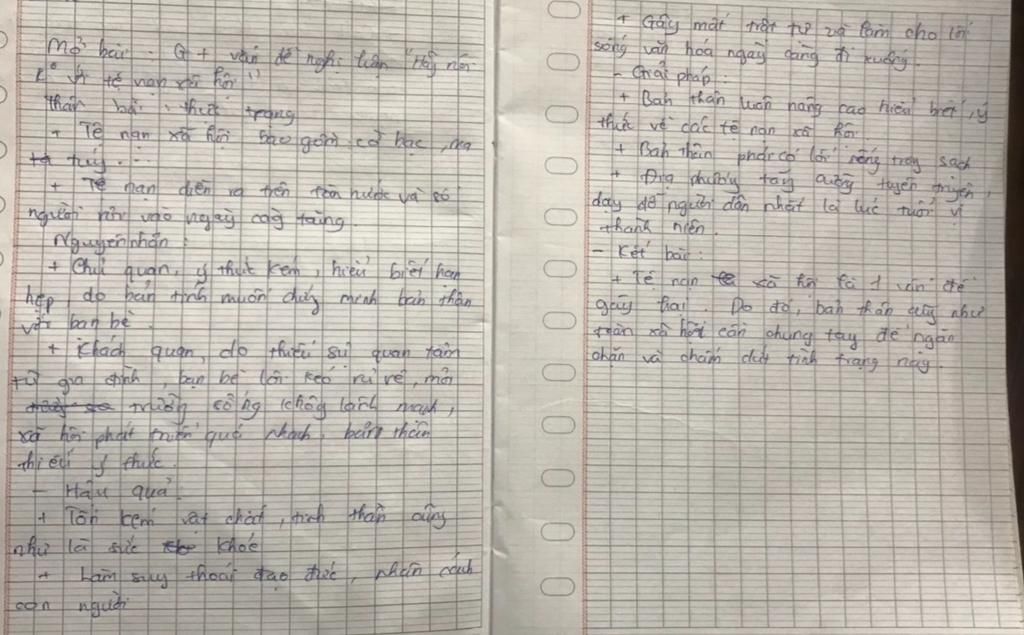 Mở bài : G + vấn đề nghị luận "Hãy nói
k° với tệ nạn xã hội"
thân bài : thực trạng
+ Tệ nạn xã hội bao gồm cờ bạc, ma
túy...
+ Tệ nạn diễn ra trên toàn nước và số
người rơi vào ngày càg tăng.
Nguyên nhân :
+ Chủ quan, ý thức kém, hiểu biết hạn
hẹp, do bản tính muốn chứng minh bản thân
với bạn bè
+ Khách quan, do thiếu sự quan tâm
từ gia đình, bạn bè lôi kéo rủ rê, môi
trường sống khôg lành mạnh,
xã hội phát triển quá nhanh, bản thân
thiếu ý thức.
- Hậu quả:
+ Tốn kém vật chất, tinh thần cũng
như là sức khoẻ
+ Làm suy thoái đạo đức, nhân cách
con người
+ Gây mất trật tự và làm cho lối
sống văn hoá ngày càng đi xuống.
- Giải pháp :
+ Bản thân luôn nâng cao hiểu biết, ý
thức về các tệ nạn xã hội
+ Bản thân phải có lối sống trog sạch
+ Địa phương tăg cường tuyên truyền,
dạy dỗ người dân nhất là lứa tuổi vị
thành niên.
- Kết bài :
+ Tệ nạn xã hội là 1 vấn đề
gây hại. Do đó, bản thân cũg như
toàn xã hội cần chung tay để ngăn
chặn và chấm dứt tình trạng này.